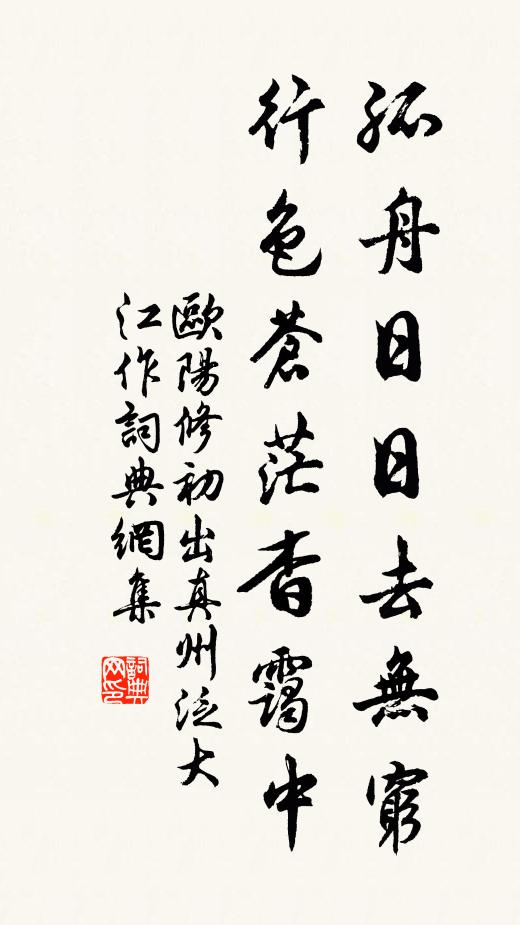 孤舟日日去無窮
行色蒼茫杳靄中
歐陽修初出真州泛大
江作詞典網集
詞典
网印